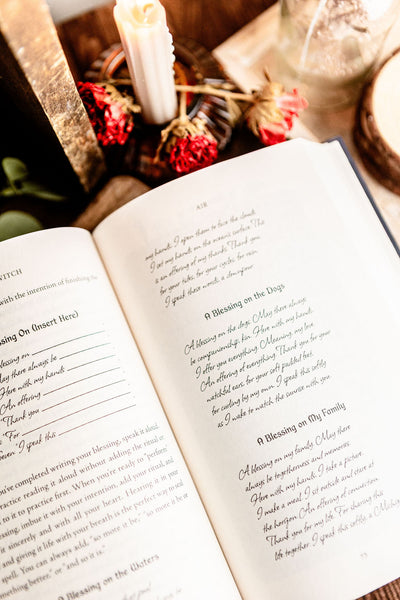 WITCH
with the intention of finishing the
ssing On (Insert Here)
lessing on
May there always be
Here with my hands
An offering
Thank you
For
I speak this
you've completed writing your blessing, speak it aloud
practice reading it aloud without adding the ritual or
to it to practice first. When you're ready to "perform"
blessing, imbue it with your intention, add your ritual, and
it sincerely and with all your heart. Hearing it in your
and giving it life with your breath is the perfect way to end
spell. You can always add, "so more it be," "so mote it be"
mething better," or "and so it is."
A Blessing on the Waters
AIR
my hands. I open them to face the clouds.
I set my hands on the ocean's surface. This
is an offering of my thanks. Thank you
for your tides, for your cycles, for rain.
I speak these words, a downpour.
A Blessing on the Dogs
A blessing on the dogs. May there always
be companionship, kin. Here with my hands,
I offer you everything. Meaning, my love.
An offering of everything. Thank you for your
watchful ears, for your soft padded feet,
for curling by my own. I speak this softly
as I wake to watch the sunrise with you.
A Blessing on My Family
A blessing on my family. May there
always be togetherness and memories.
Here with my hands, I take a picture.
I make a meal. I sit outside and stare at
the horizon. An offering of connection.
Thank you for my life. For sharing this
life together. I speak this softly, a